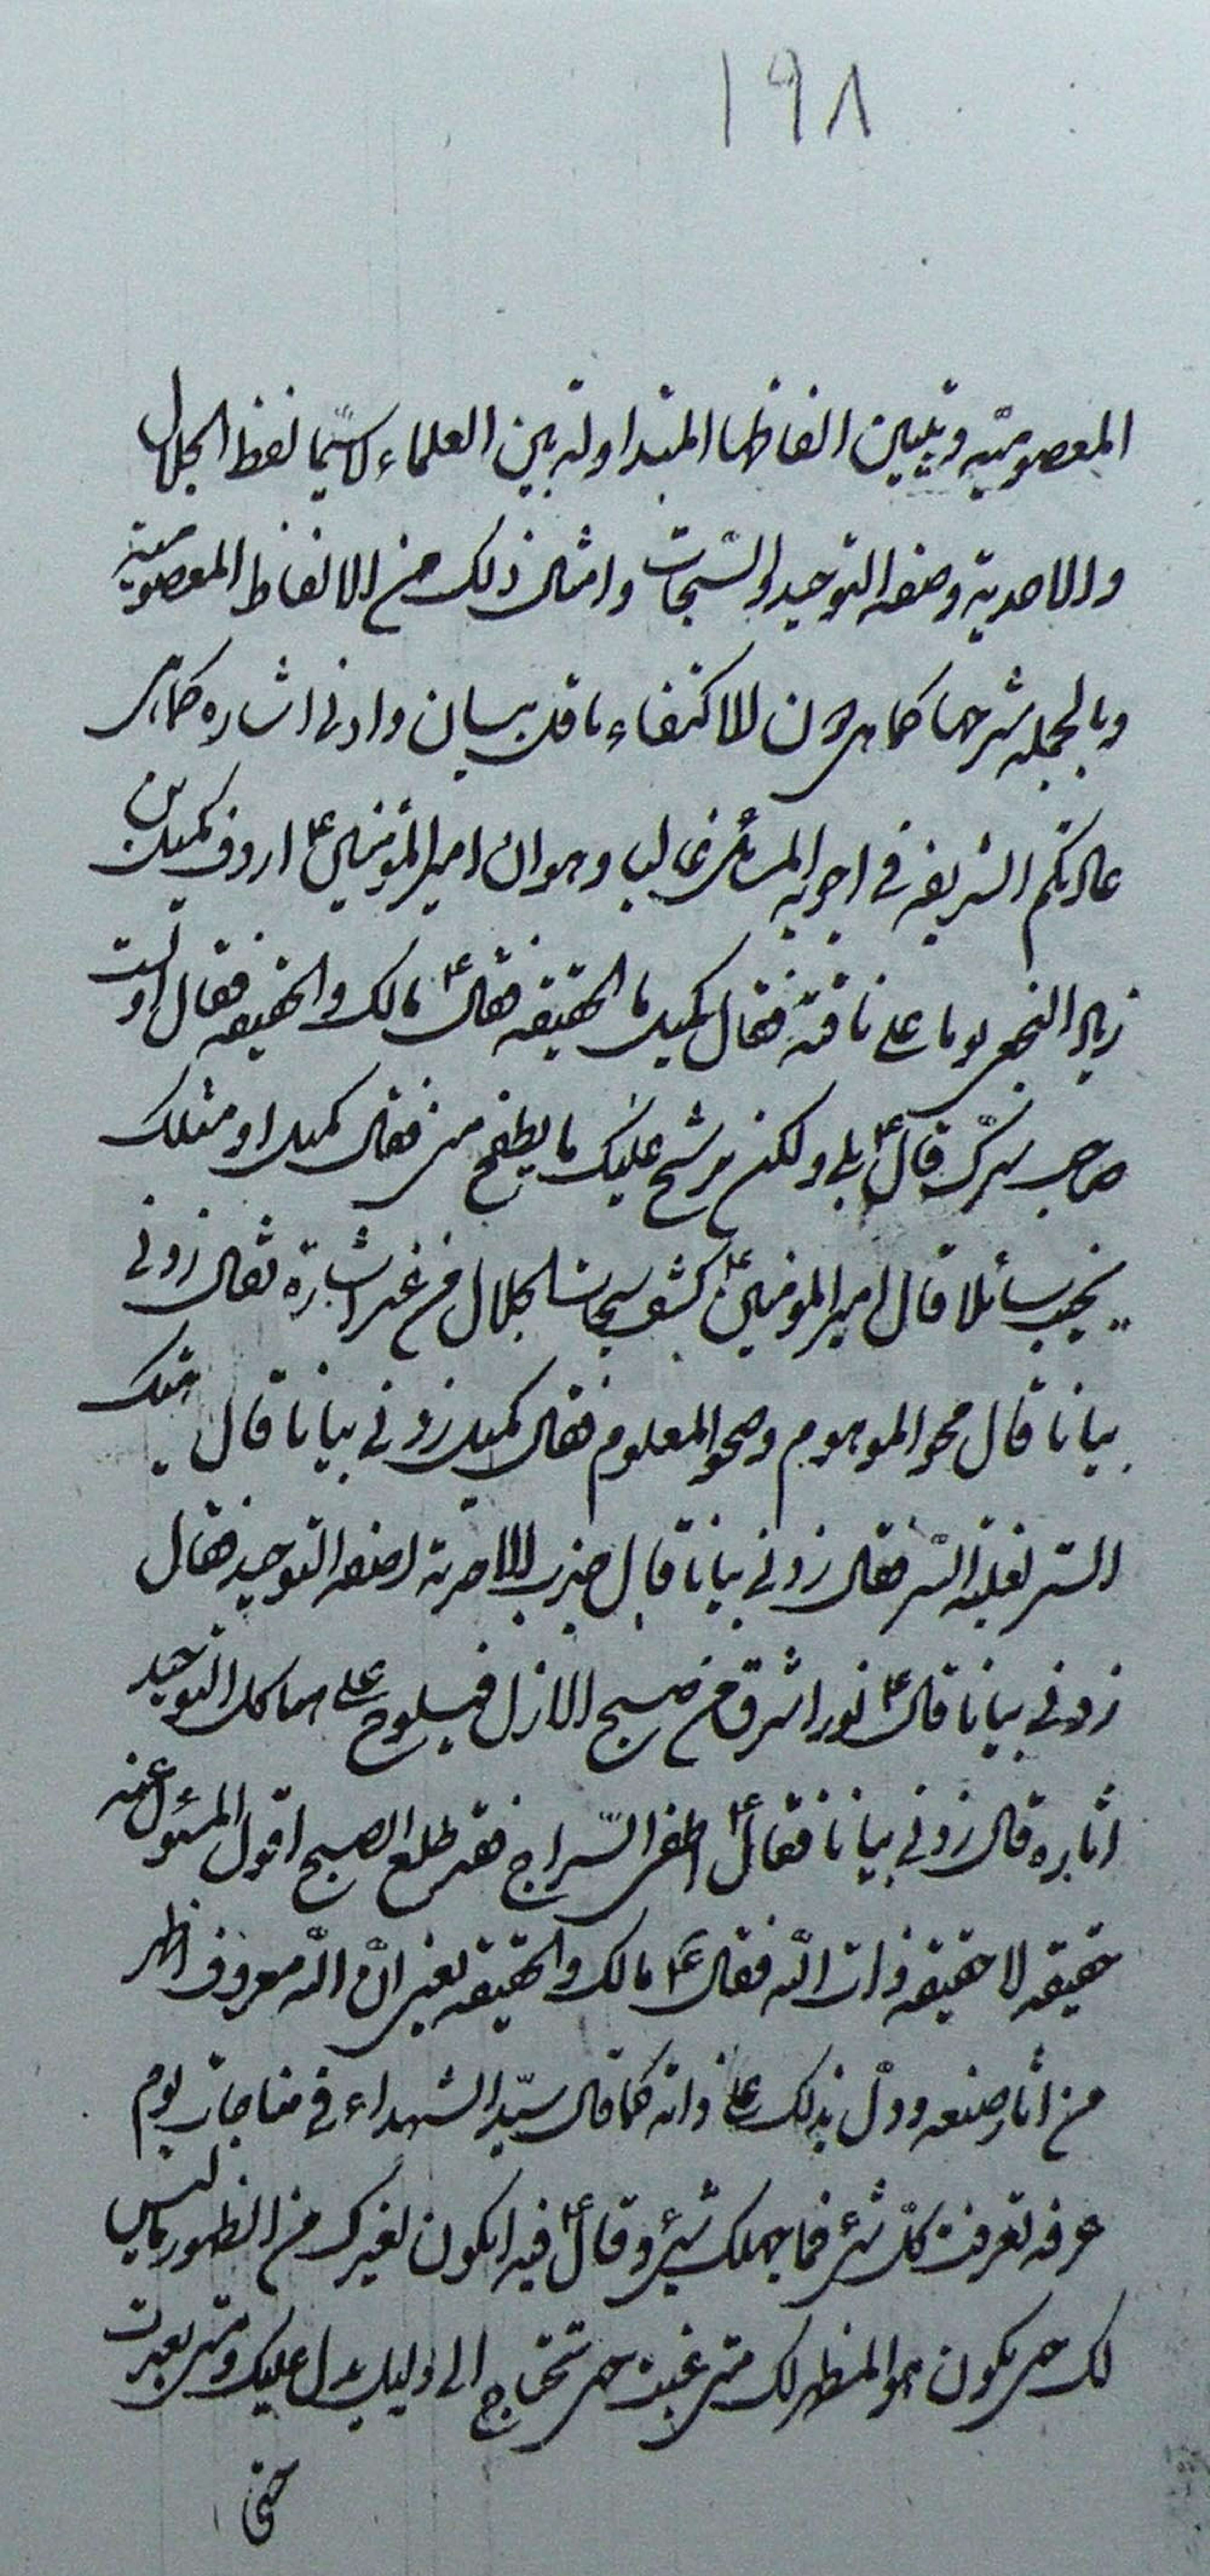 ١٩٨
المعصوميّه وتبيين الفاظها المتداولة بين العلماء لاسيّما لفظ الجلال
والاحدية وصفه التوحيد والسّبحات وامثال ذلك من الالفاظ المعصومية
وبالجمله شرحها كما هى لان الاكتفاء باقل بيان وادنى اشاره كما هى
عادتكم الشريفه فى اجوبه المسائل غالبا وهو ان اميرالمؤمنين ع اردف كميل بن
زياد النخعى يوما على ناقته فقال كميل ما الحقيقه فقال ع مالك والحقيقه فقال اولست
صاحب سرّك قال ع بلى ولكن يرشح عليك ما يطفح منى فقال كميل او مثلك
يخيب سائلا قال اميرالمومنين ع كشف سبحات الجلال من غير اشارة فقال زدنى
بيانا قال محو الموهوم وصحو المعلوم فقال كميل زدنى بيانا قال هتك
الستر لغلبة السّر فقال زدنى بيانا قال جذب الاحدية لصفه التوحيد فقال
زدنى بيانا قال ع نور اشرق من صبح الازل فيلوح على هياكل التوحيد
اثاره قال زدنى بيانا فقال ع اطفى السّراج فقد طلع الصبح اقول المسئول عنه
حقيقه لا حقيقه ذات اللّه فقال ع مالك والحقيقه يعنى انّ اللّه معروف اظهر
من اثار صنعه ودلّ بذلك على ذاته كما قال سيّد الشهداء فى مناجات يوم
عرفه تعرفت كلّ شئ فما جهلك شئ وقال ع فيه ايكون لغيرك من الظهور ما ليس
لك حى يكون هو المظهر لك متى غبت حى تحتاج الى دليل يدل عليك ومتى بعدت
حتى